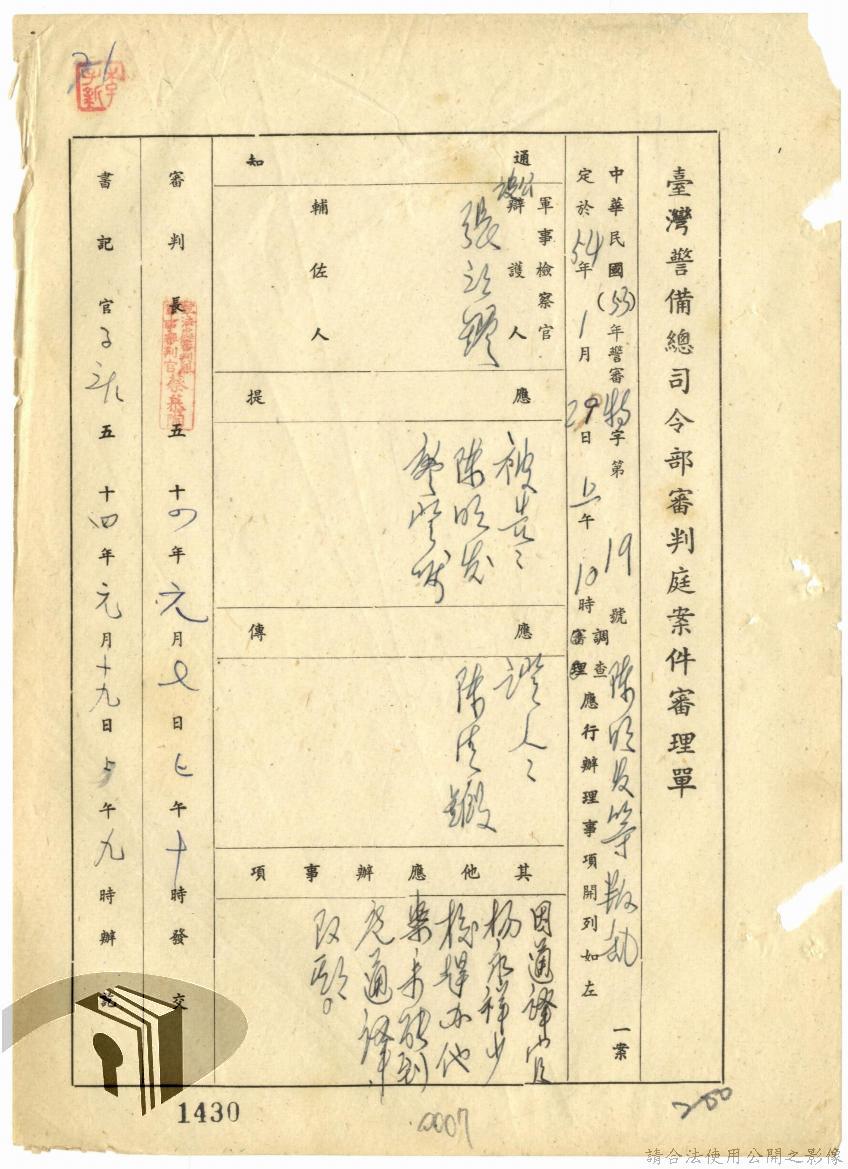 臺灣警備總司令部審判庭案件審理單
中華民國(53)年警審特字第19號陳明發等叛亂一案
定於54年1月29日上午10時調查審理應行辦理事項開列如左
通知
軍事檢察官
公設辯護人
輔佐人
應提
被告:
陳明發
應傳
證人:
陳清
其他應辦事項
因通譯官
楊永祥少
校擔亦他
案未能到
庭通譯
改期。
審判長 五十四年元月七日上午十時發交
書記官 五十四年元月十九日上午九時辦訖
1430
0007
200
請合法使用公開之影像